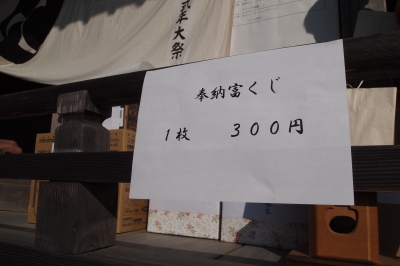 式年大祭
奉納富くじ
1枚 300円